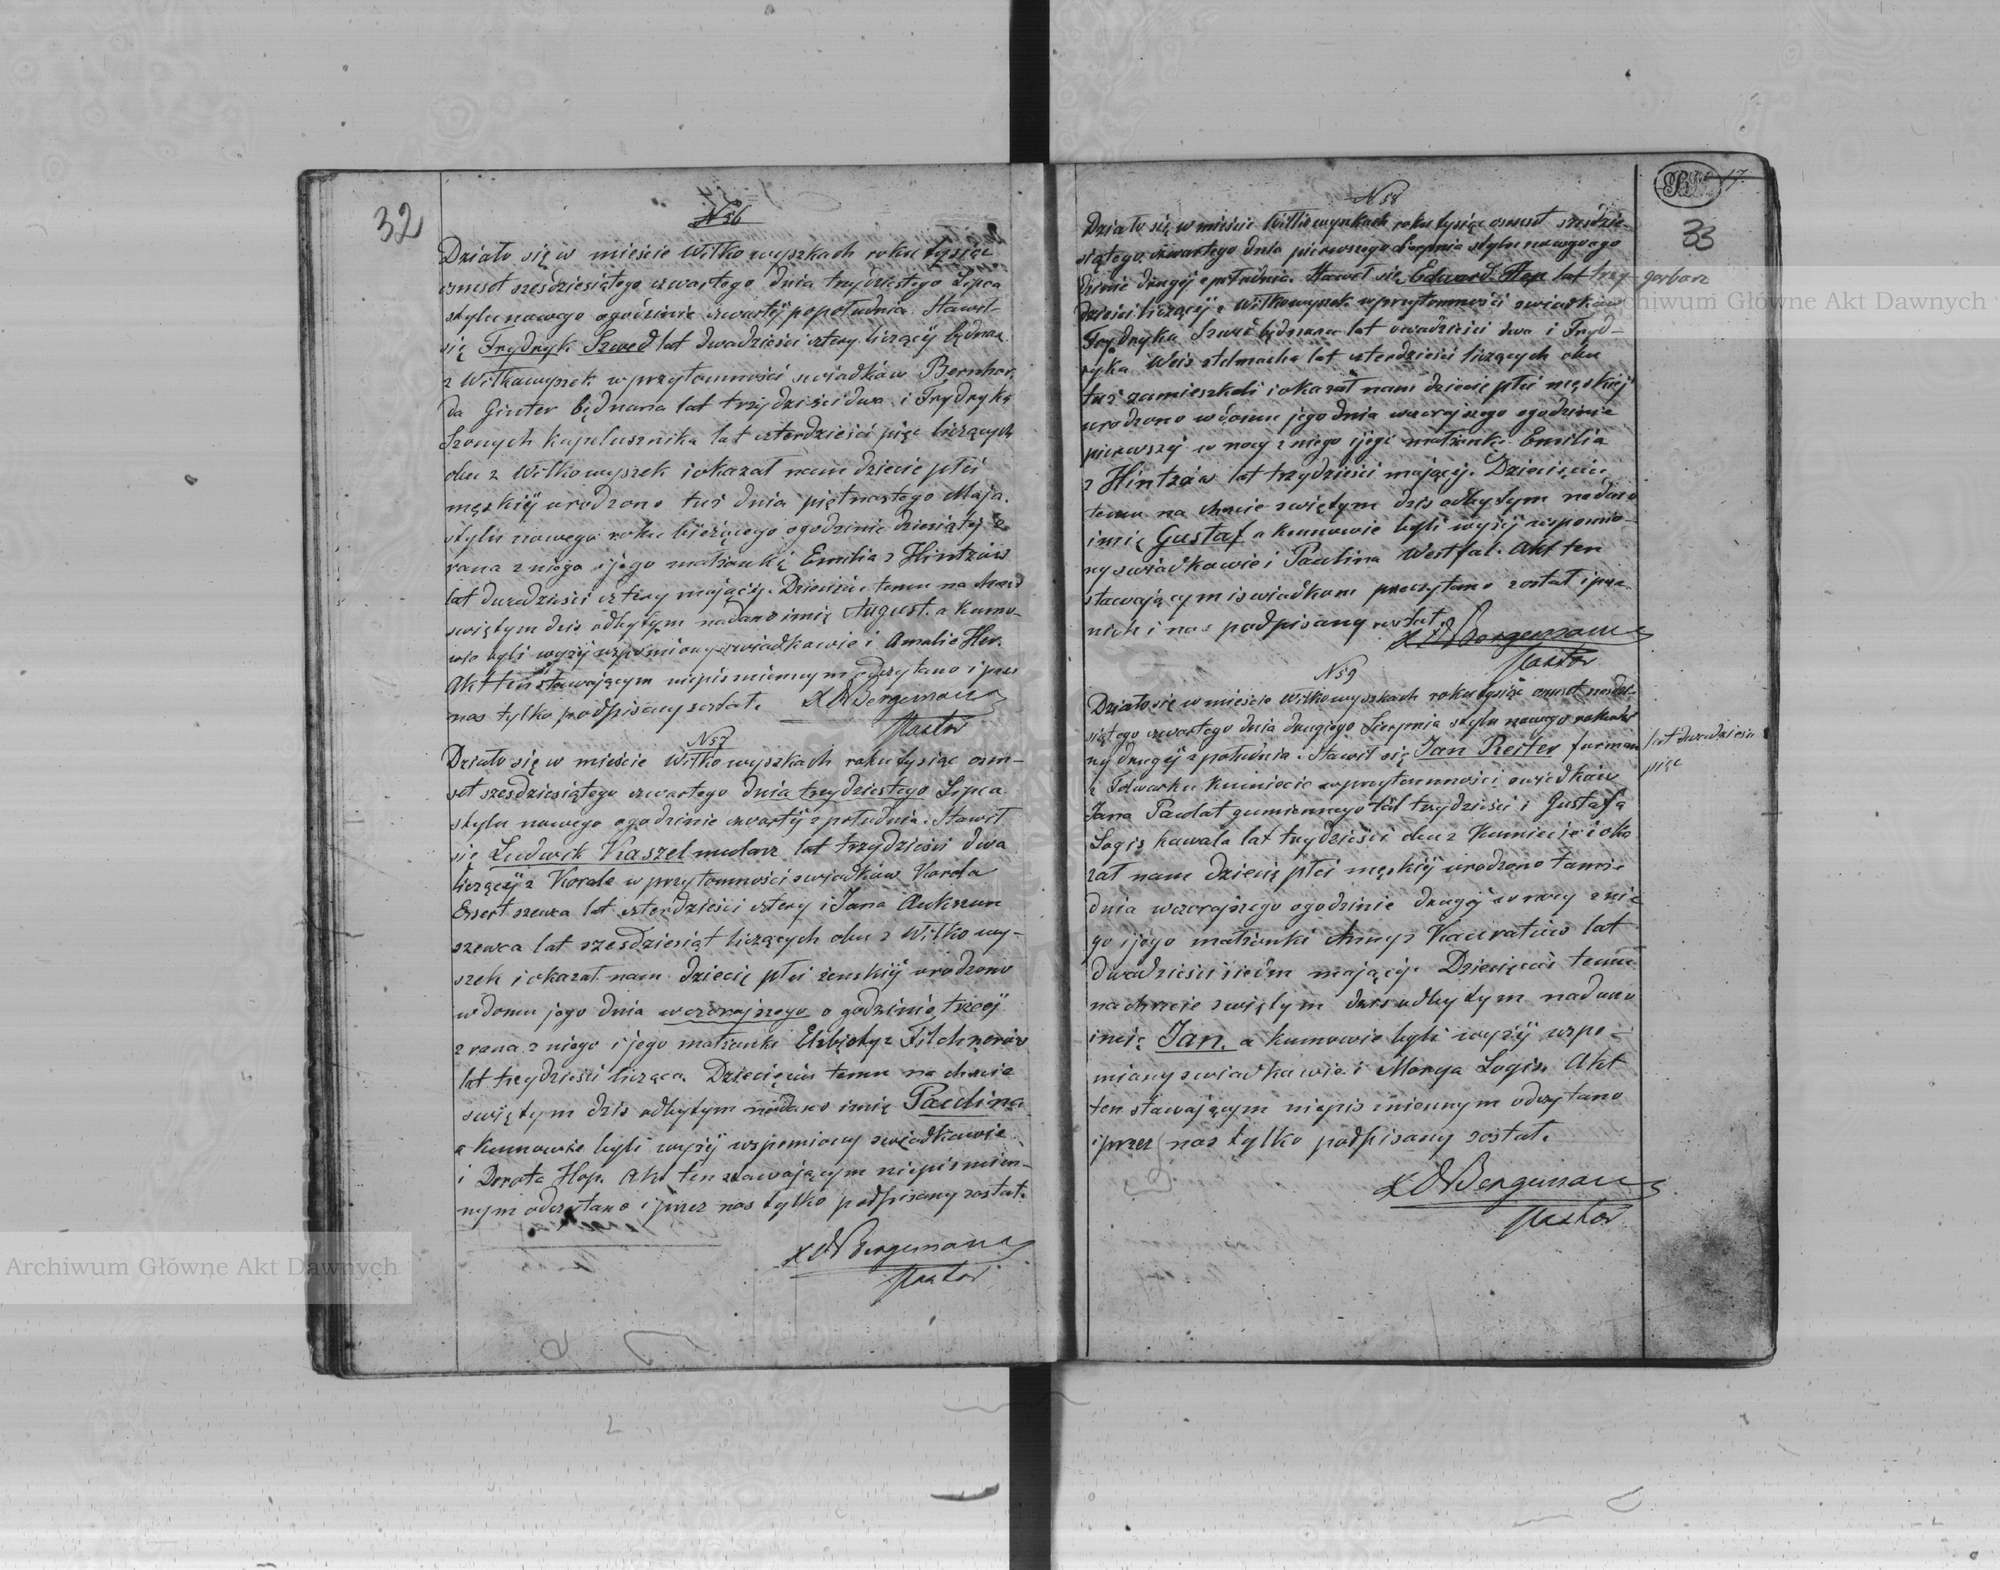 32
N 56
Działo się w mieście Wiłkowyszkach roku tysiąc
osmset sześdziesiątego czwartego dnia trzydziestego Lipca
stylu nowego ogodzinie czwartéj popołudniu. Stawił
się Frydryk Szwed lat dwadzieści cztery liczący bednaż
z Wiłkowyszek wprzytomności swiadków Bernhar-
da Ginter bednaża lat trzydzieści dwa i Frydryka
Szonych kapelusznika lat czterdzieści pięc liczących
obu z Wiłkowyszek i okazał nam dziecie płci
męskiéj urodzone tuż dnia piętnastego Maja
stylu nowego roku bieżącego ogodzinie dziesiątéj z
rana z niego i jego małżonki Emilia z Hintzów
lat dwadzieści cztery mającéj. Dziecięciu temu na chrzcie
swiętym dzis odbytym nadano imię August. a kumo-
wie byli wyżéj wspomiony swiadkowie i Amalie Her.
Akt ten stawającym niepismiennym odczytano i przez
nas tylko podpisany został. X W Bergemann
Pastor
N 57
Działo się w mieście Wiłkowyszkach roku tysiąc osm-
set szesdziesiątego czwartego dnia trzydziestego Lipca
stylu nowego ogodzinie czwartéj z południa. Stawił
się Ludwik Kaszel mularz lat trzydzieści dwa
liczącéj z Korale w przytomności swiadków Karola
Ensert szewca lat czterdzieści cztery i Jana Aukszun
szewca lat szesdziesiąt liczących obu z Wiłkowy-
szek i okazał nam dziecię płci żenskiéj urodzono
w domu jego dnia wczorajszego o godzinie trzeciéj
z rana z niego i jego małżonki Elzbiety z Filchnerów
lat trzydzieści licząca. Dziecięciu temu na chrzcie
swiętym dzis odbytym nadano imię Paulina
a kumowie byli wyżéj wspomiony swiadkowie
i Dorota Hop. Akt ten stawającym niepismien-
nym odczytano i przez nas tylko podpisany został.
X W Bergemann
Pastor
17.
33
N 58
Działo się w mieście Wiłkowyszkach roku tysiąc osmset szesdzie-
siątego czwartego dnia pierwszego Sierpnia stylu nowego ogo
dzinie drugiéj z południa. Stawił się Edward Hop lat trzy- garbarz
dzieści liczący z Wiłkowyszek w przytomności swiadków
Frydryka Szwed bednarza lat dwadzieści dwa i Fryd-
ryka Weis stelmacha lat czterdzieści liczących obu
tuż zamieszkali i okazał nam dziecię płci męskiéj
urodzono w domu jego dnia wczorajszego ogodzinie
pierwszéj w nocy z niego i jego małżonki Emilia
z Hintzów lat trzydzieści mającéj. Dziecięciu
temu na chrzcie swiętym dzis odbytym nadano
imię Gustaf a kumowie byli wyżéj wspomio-
ny swiadkowie i Paulina Westfal. Akt ten
stawającym i swiadkom przeczytano został i prze
nich i nas podpisany został.
X W Bergemann
Pastor
N 59
Działo się w mieście Wiłkowyszkach roku tysiąc osmset szesdzie-
siątego czwartego dnia drugiego Sierpnia stylu nowego
ny drugiéj z południa. Stawił się Jan Reiter furman lat dwadzieścia
pięc
z Folwarku Kumiecie w przytomności swiadków
Jana Pawlat gumiennego lat trzydzieści i Gustafa
Logis kawala lat trzydzieści obu z Kumiecie i oka
zał nam dziecię płci męskiéj urodzono tamże
dnia wczorajszego ogodzinie drugéj w nocy z nie
go i jego małżonki Anny z Kauratiów lat
dwadzieści siedm mającéj. Dziecięciu temu
na chrzcie swiętym dzis odbytym nadano
imię Jan. a kumowie byli wyżéj wspo-
miany swiadkowie i Marya Logis. Akt
ten stawającym niepismiennym odczytano
i przez nas tylko podpisany został.
X W Bergemann
Pastor
Archiwum Główne Akt Dawnych
Archiwum Główne Akt Dawnych